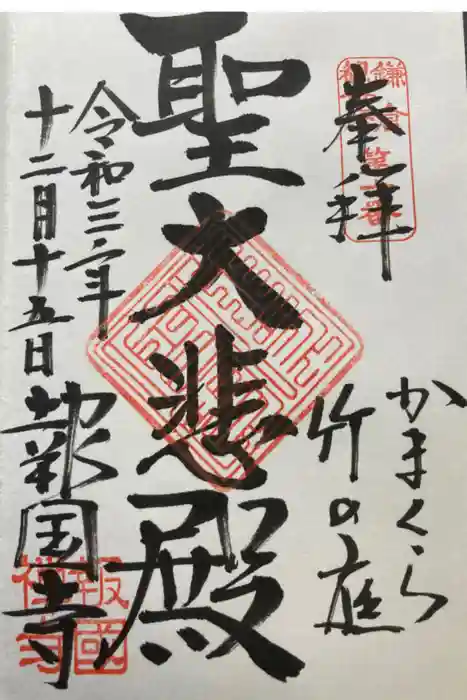 奉拝
かまくら
竹の庭
聖大悲殿
令和三年
十二月十五日
報国寺
報國
禅寺